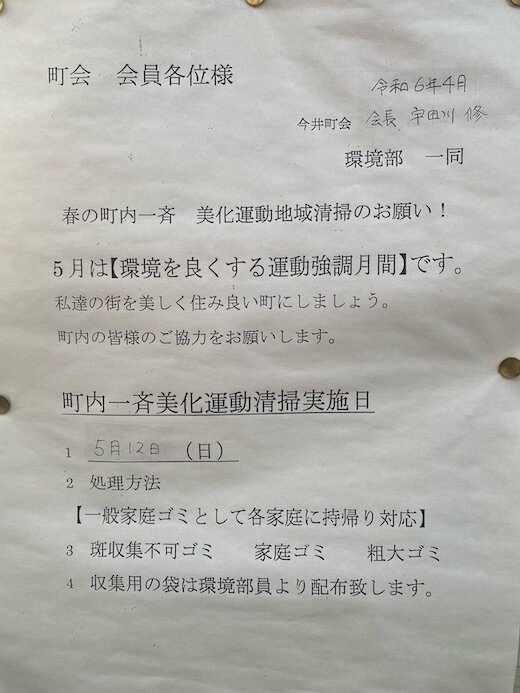 町会　会員各位様
令和6年4月
今井町会　会長　宇田川　修
環境部　一同
春の町内一斉　美化運動地域清掃のお願い！
５月は【環境を良くする運動強調月間】です。
私達の街を美しく住み良い町にしましょう。
町内の皆様のご協力をお願いします。
町内一斉美化運動清掃実施日
1　5月12日　（日）
2　処理方法
【一般家庭ゴミとして各家庭に持帰り対応】
3　斑収集不可ゴミ　　家庭ゴミ　　粗大ゴミ
4　収集用の袋は環境部員より配布致します。